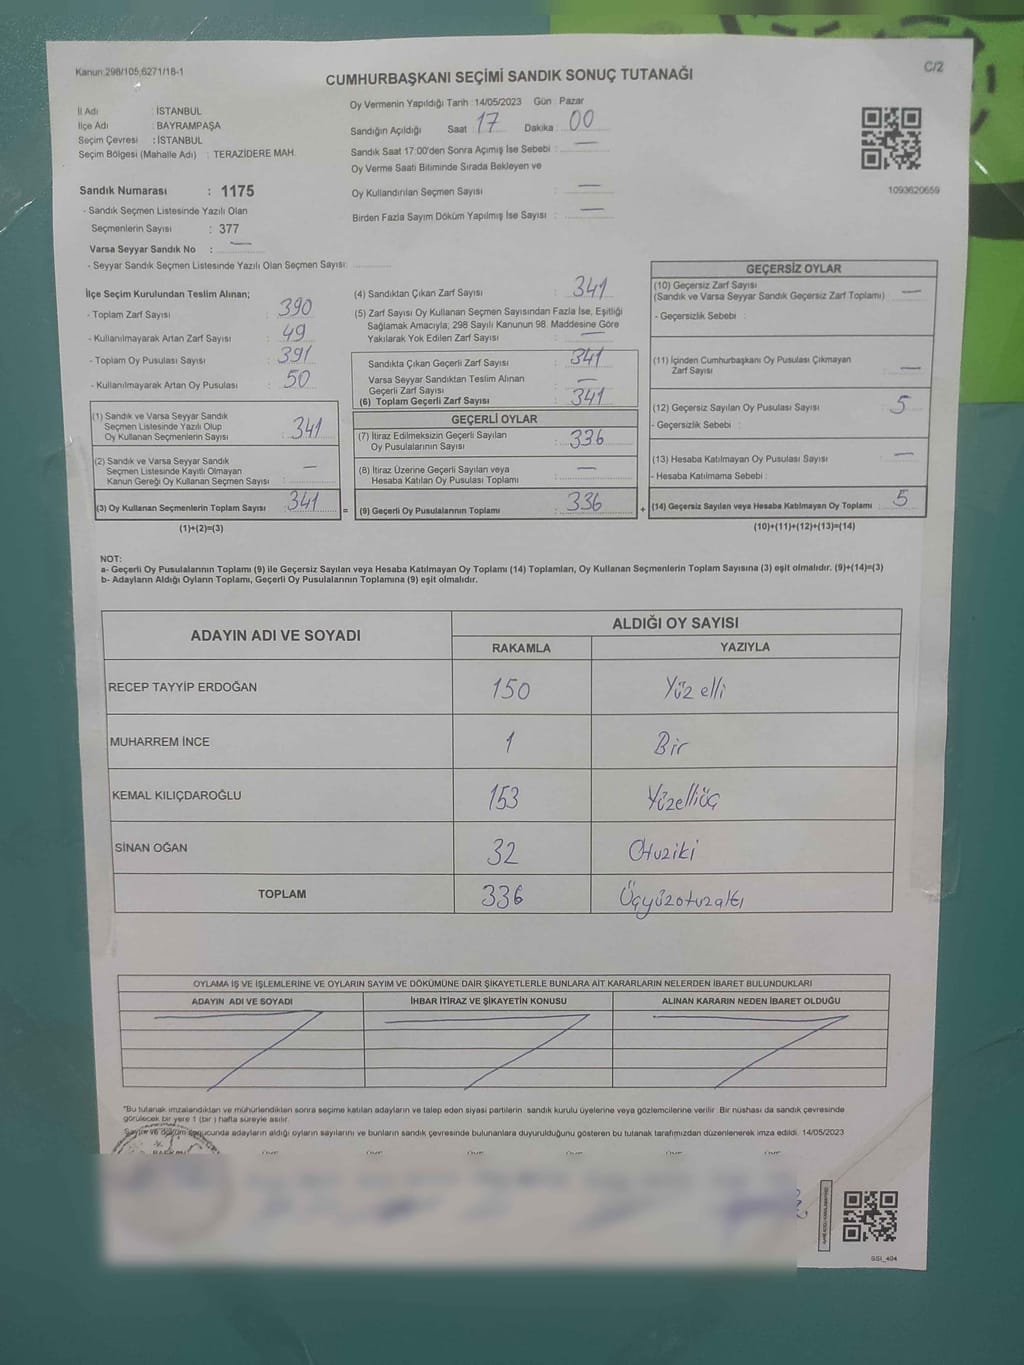 Kanun:298/105,6271/18-1
C/2
CUMHURBAŞKANI SEÇİMİ SANDIK SONUÇ TUTANAĞI
İl Adı : İSTANBUL
İlçe Adı : BAYRAMPAŞA
Seçim Çevresi : İSTANBUL
Seçim Bölgesi (Mahalle Adı) : TERAZİDERE MAH.
Oy Vermenin Yapıldığı Tarih : 14/05/2023 Gün : Pazar
Sandığın Açıldığı Saat : 17 Dakika : 00
Sandık Saat 17:00'den Sonra Açımış İse Sebebi : —
Oy Verme Saati Bitiminde Sırada Bekleyen ve
Oy Kullandırılan Seçmen Sayısı : —
Birden Fazla Sayım Döküm Yapılmış İse Sayısı : —
1093620659
Sandık Numarası : 1175
- Sandık Seçmen Listesinde Yazılı Olan
Seçmenlerin Sayısı : 377
Varsa Seyyar Sandık No : —
- Seyyar Sandık Seçmen Listesinde Yazılı Olan Seçmen Sayısı:
İlçe Seçim Kurulundan Teslim Alınan;
- Toplam Zarf Sayısı : 390
- Kullanılmayarak Artan Zarf Sayısı : 49
- Toplam Oy Pusulası Sayısı : 391
- Kullanılmayarak Artan Oy Pusulası : 50
(1) Sandık ve Varsa Seyyar Sandık
Seçmen Listesinde Yazılı Olup
Oy Kullanan Seçmenlerin Sayısı : 341
(2) Sandık ve Varsa Seyyar Sandık
Seçmen Listesinde Kayıtlı Olmayan
Kanun Gereği Oy Kullanan Seçmen Sayısı : —
(3) Oy Kullanan Seçmenlerin Toplam Sayısı : 341
(1)+(2)=(3)
(4) Sandıktan Çıkan Zarf Sayısı : 341
(5) Zarf Sayısı Oy Kullanan Seçmen Sayısından Fazla İse, Eşitliği
Sağlamak Amacıyla; 298 Sayılı Kanunun 98. Maddesine Göre
Yakılarak Yok Edilen Zarf Sayısı : —
Sandıkta Çıkan Geçerli Zarf Sayısı : 341
Varsa Seyyar Sandıktan Teslim Alınan
Geçerli Zarf Sayısı : —
(6) Toplam Geçerli Zarf Sayısı : 341
GEÇERLİ OYLAR
(7) İtiraz Edilmeksizin Geçerli Sayılan
Oy Pusulalarının Sayısı : 336
(8) İtiraz Üzerine Geçerli Sayılan veya
Hesaba Katılan Oy Pusulası Toplamı : —
= (9) Geçerli Oy Pusulalarının Toplamı : 336
GEÇERSİZ OYLAR
(10) Geçersiz Zarf Sayısı
(Sandık ve Varsa Seyyar Sandık Geçersiz Zarf Toplamı) : —
- Geçersizlik Sebebi :
(11) İçinden Cumhurbaşkanı Oy Pusulası Çıkmayan
Zarf Sayısı : —
(12) Geçersiz Sayılan Oy Pusulası Sayısı : 5
- Geçersizlik Sebebi :
(13) Hesaba Katılmayan Oy Pusulası Sayısı : —
- Hesaba Katılmama Sebebi :
+ (14) Geçersiz Sayılan veya Hesaba Katılmayan Oy Toplamı : 5
(10)+(11)+(12)+(13)=(14)
NOT:
a- Geçerli Oy Pusulalarının Toplamı (9) ile Geçersiz Sayılan veya Hesaba Katılmayan Oy Toplamı (14) Toplamları, Oy Kullanan Seçmenlerin Toplam Sayısına (3) eşit olmalıdır. (9)+(14)=(3)
b- Adayların Aldığı Oyların Toplamı, Geçerli Oy Pusulalarının Toplamına (9) eşit olmalıdır.
ADAYIN ADI VE SOYADI
ALDIĞI OY SAYISI
RAKAMLA YAZIYLA
RECEP TAYYİP ERDOĞAN 150 Yüz elli
MUHARREM İNCE 1 Bir
KEMAL KILIÇDAROĞLU 153 Yüzelliüç
SİNAN OĞAN 32 Otuziki
TOPLAM 336 Üçyüzotuzaltı
OYLAMA İŞ VE İŞLEMLERİNE VE OYLARIN SAYIM VE DÖKÜMÜNE DAİR ŞİKAYETLERLE BUNLARA AİT KARARLARIN NELERDEN İBARET BULUNDUKLARI
ADAYIN ADI VE SOYADI İHBAR İTİRAZ VE ŞİKAYETİN KONUSU ALINAN KARARIN NEDEN İBARET OLDUĞU
"Bu tutanak imzalandıktan ve mühürlendikten sonra seçime katılan adayların ve talep eden siyasi partilerin sandık kurulu üyelerine veya gözlemcilerine verilir. Bir nüshası da sandık çevresinde
görülecek bir yere 1 (bir ) hafta süreyle asılır.
Sayım ve döküm sonucunda adayların aldığı oyların sayılarını ve bunların sandık çevresinde bulunanlara duyurulduğunu gösteren bu tutanak tarafımızdan düzenlenerek imza edildi. 14/05/2023
SSI_404